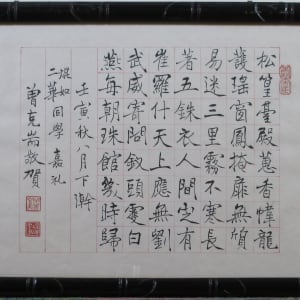 松篁臺殿蕙香幃龍
護瑤窗鳳掩扉無質
易迷三里霧不寒長
著五銖衣人間定有
崔羅什天上應無劉
武威寄問釵頭雙白
燕每朝珠館幾時歸
壬寅秋八月下澣
如
二華同學嘉礼
曾克耑敬賀